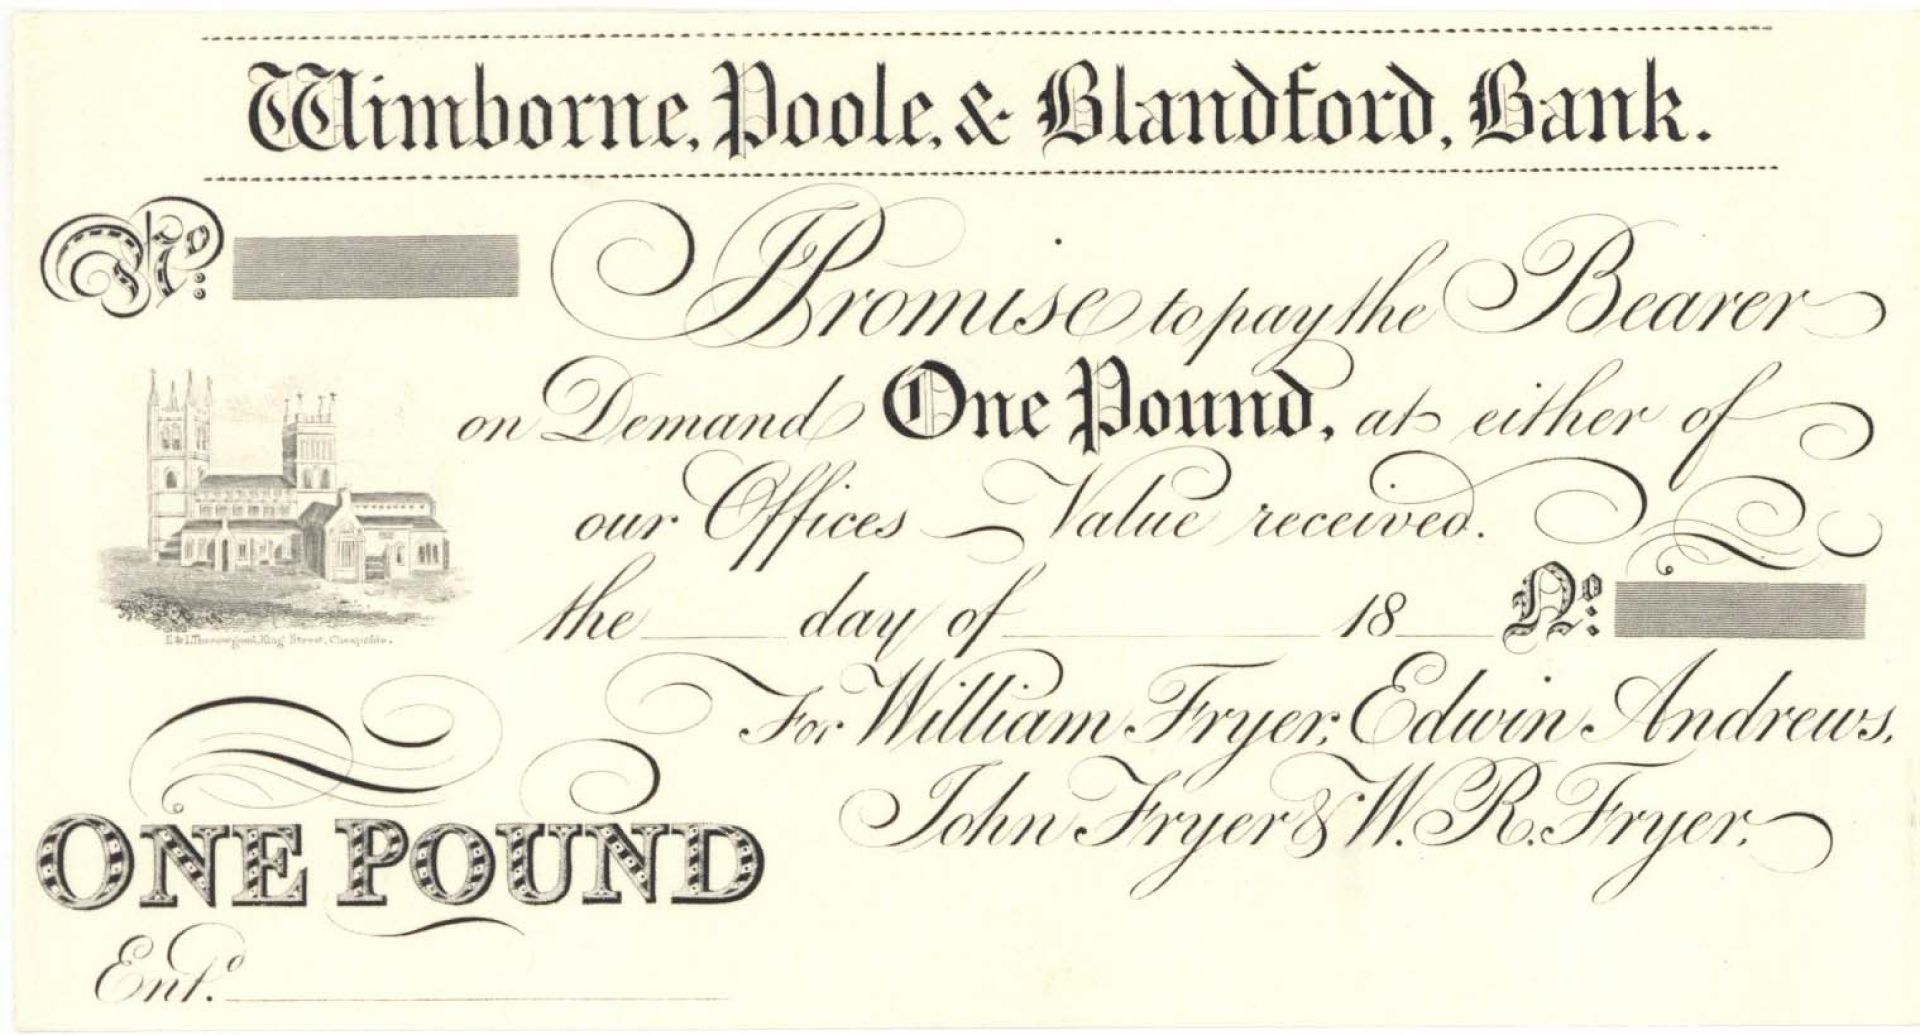 Wimborne, Poole, & Blandford, Bank.
No.
I Promise to pay the Bearer
on Demand One Pound, at either of
our Offices Value received.
the ____ day of ____ 18__ No.
E & I. Thorowgood, King Street, Cheapside.
For William Fryer, Edwin Andrews,
John Fryer & W. R. Fryer,
ONE POUND
Entd.